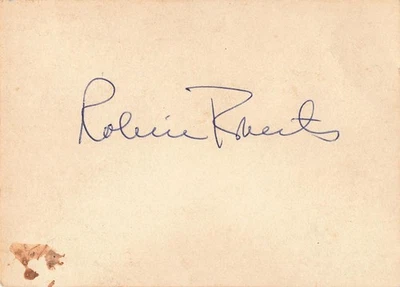 Robin Roberts